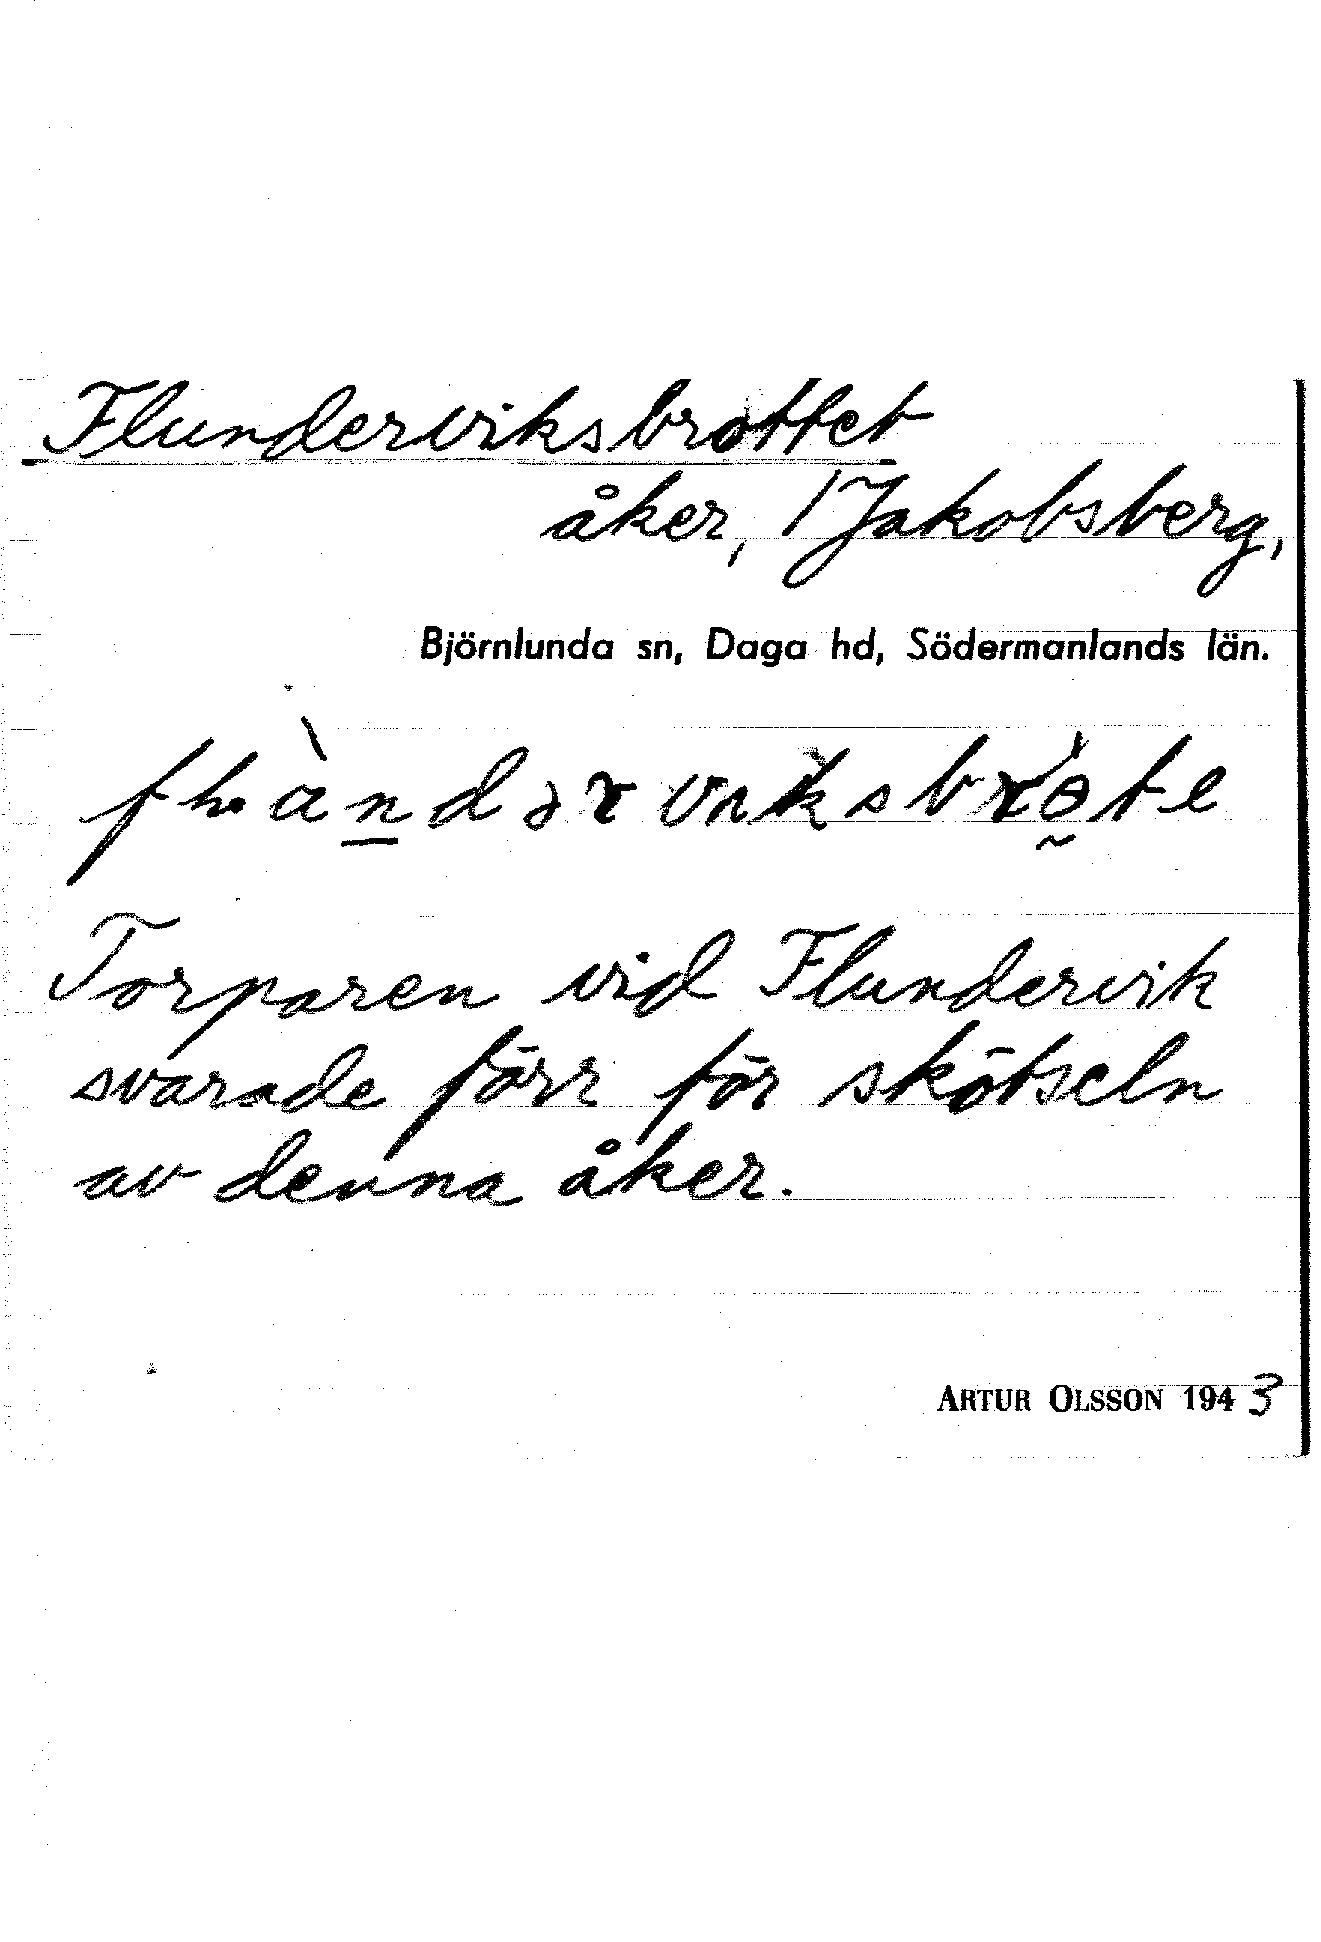 Flunderviksbrottet
åker, /Jakobsberg,
Björnlunda sn, Daga hd, Södermanlands län.
Torparen vid Flundervik
svarade förr för skötseln
av denna åker.
ARTUR OLSSON 1943